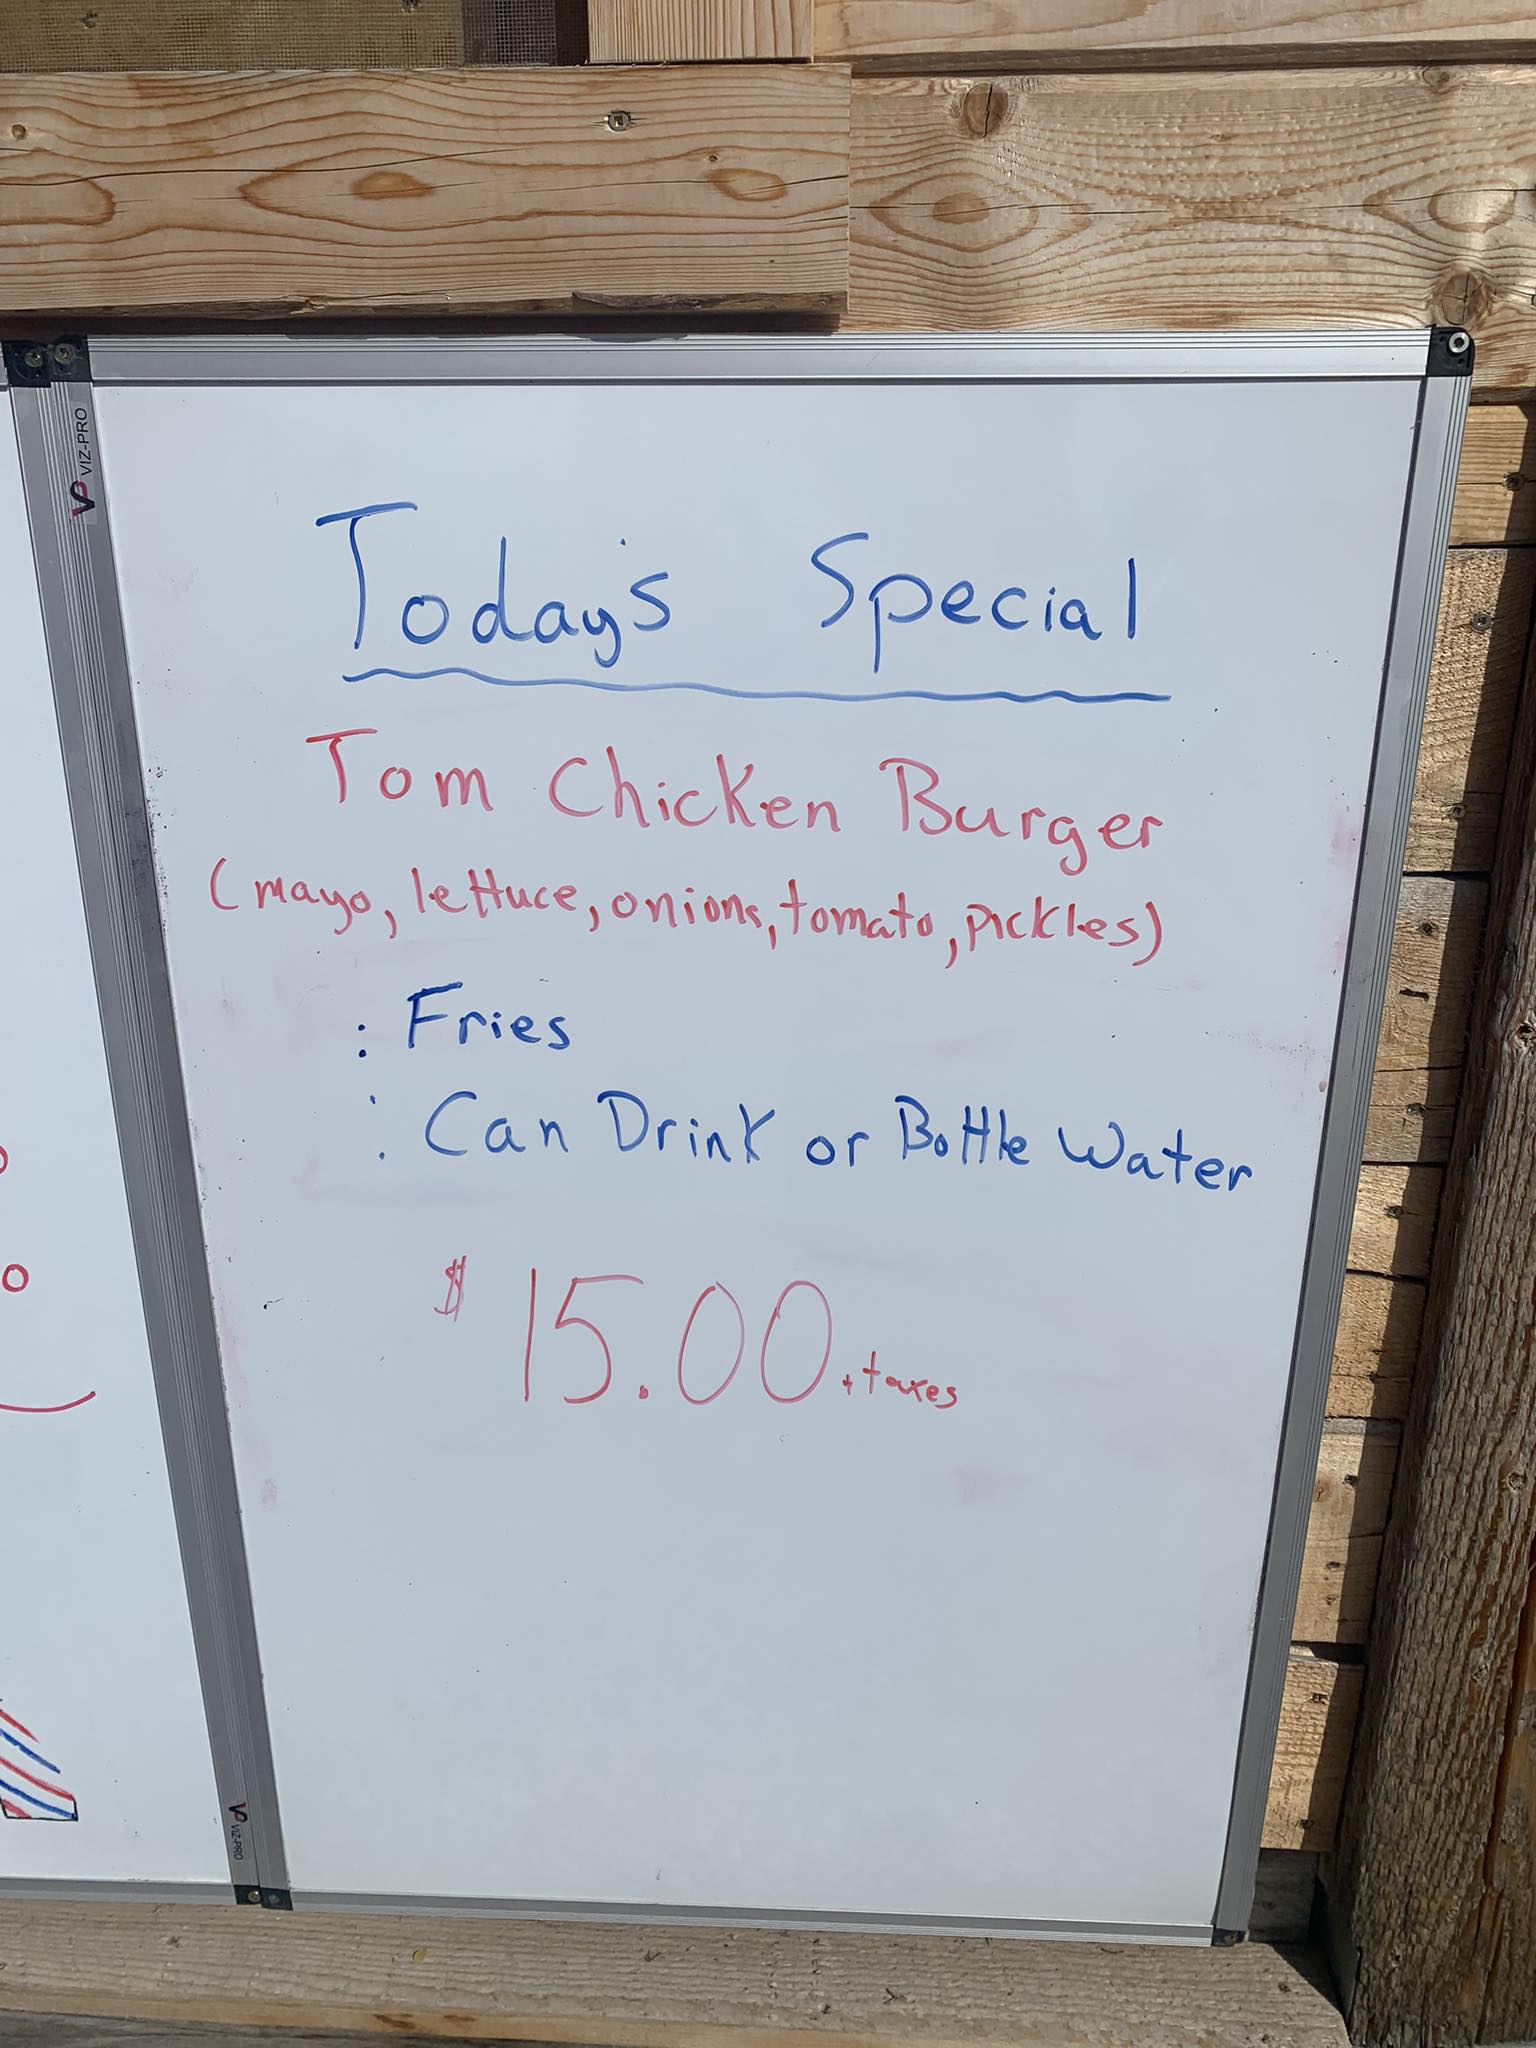 VIZ-PRO
Today's Special
Tom Chicken Burger
(mayo, lettuce, onions, tomato, pickles)
: Fries
: Can Drink or Bottle Water
$ 15.00 + taxes
VIZ-PRO